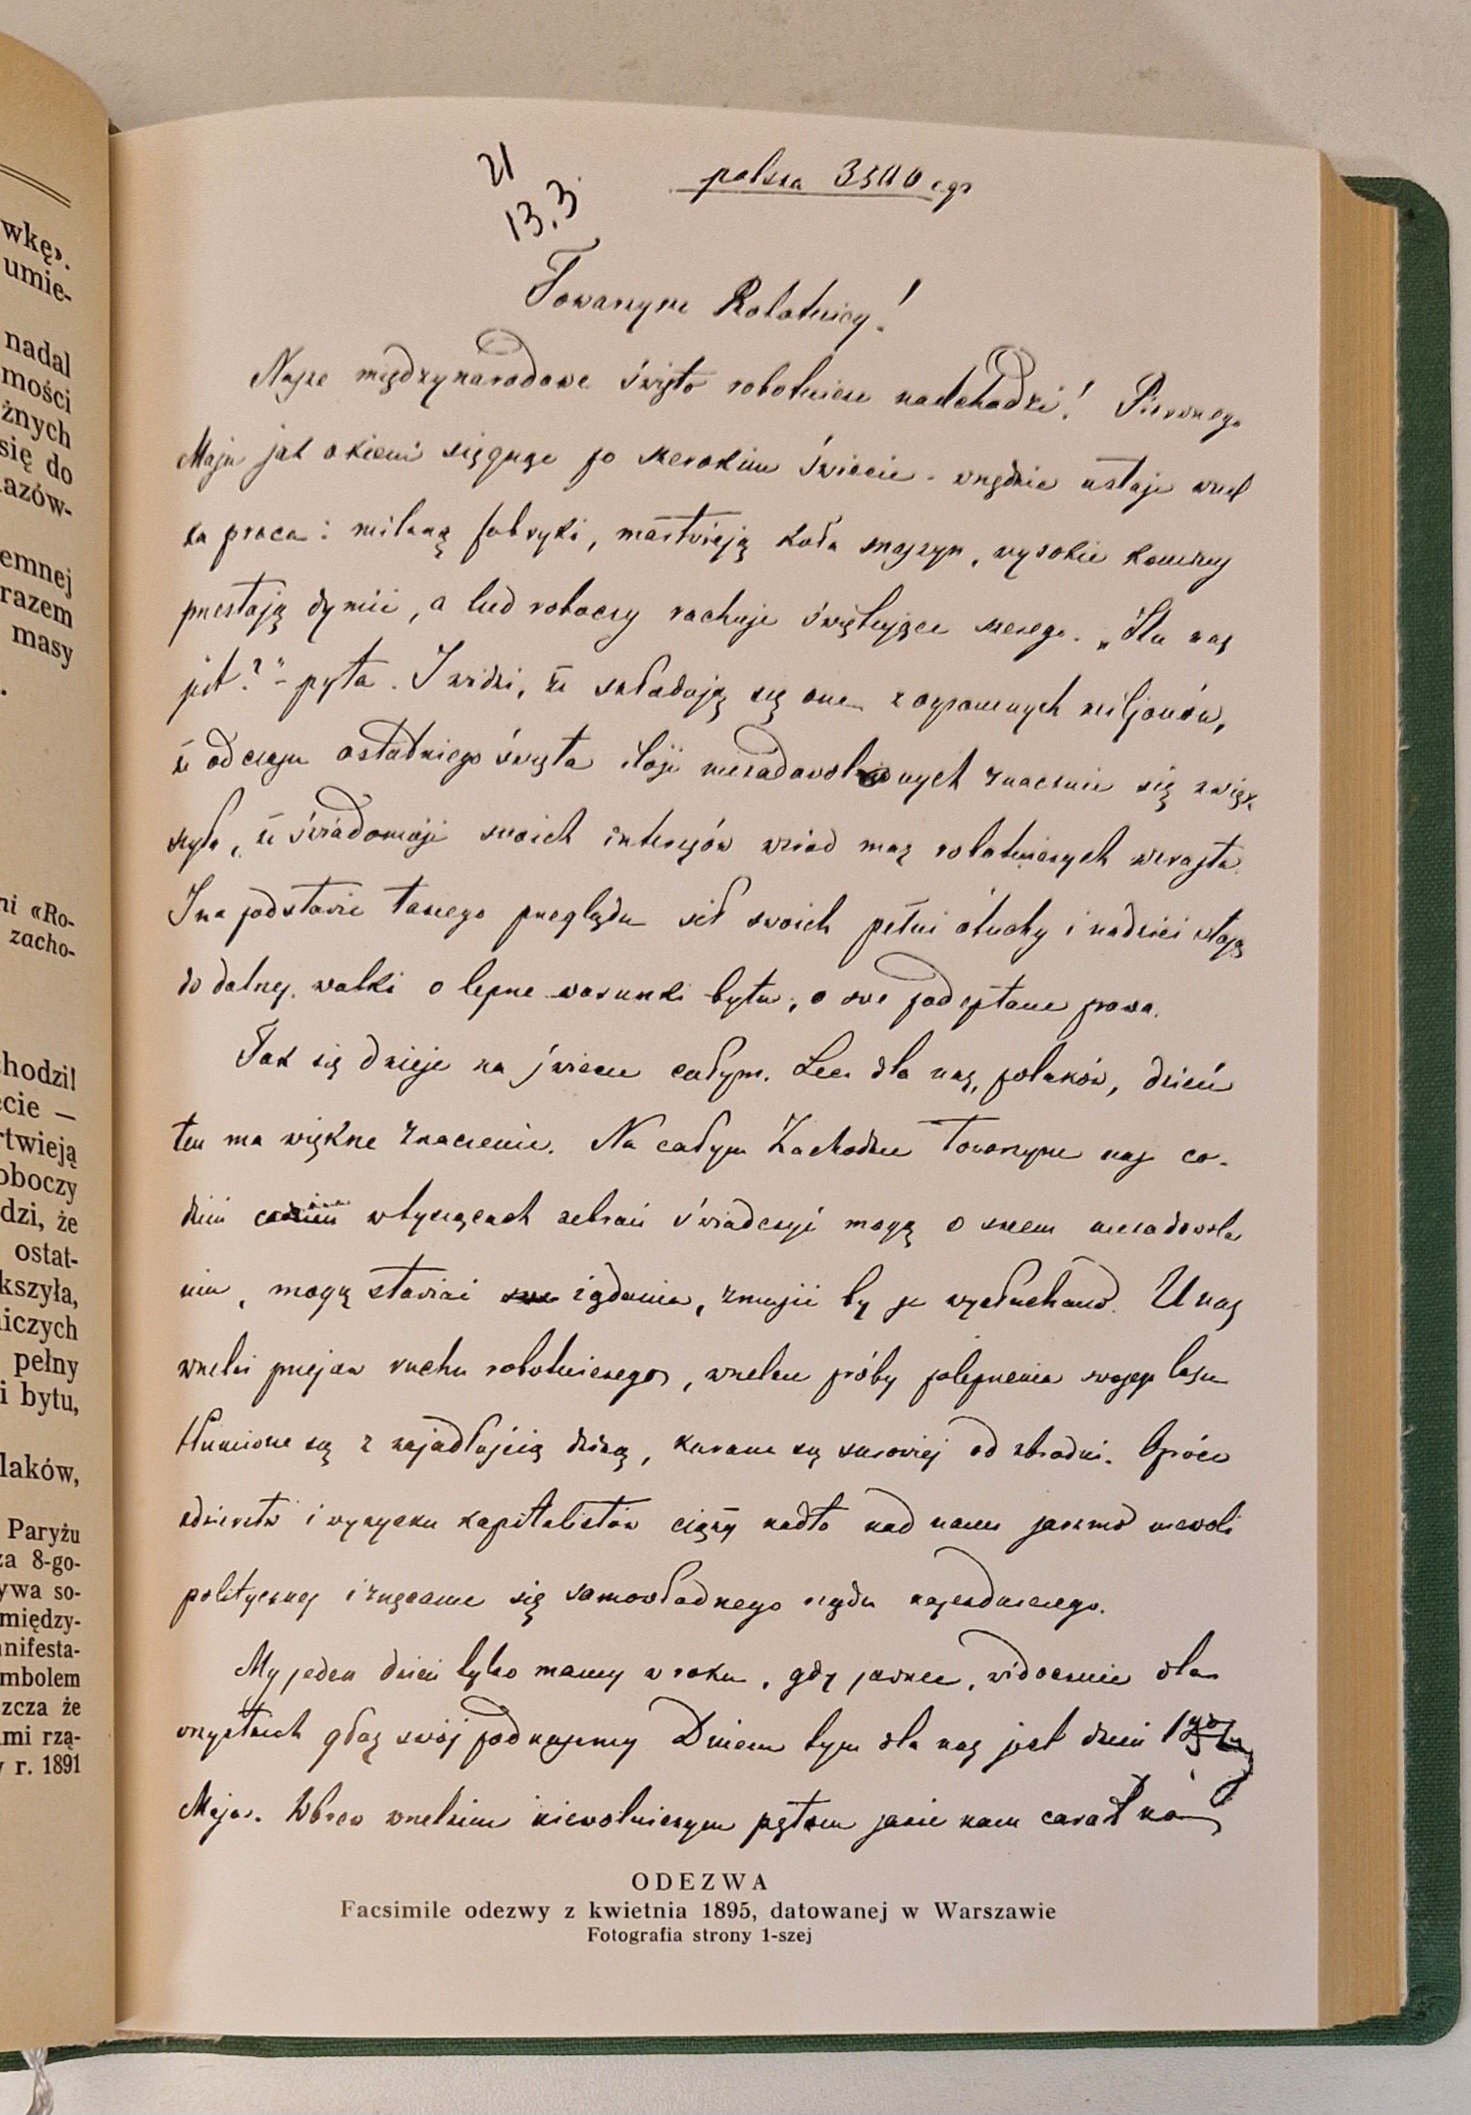 wkę».
umie-
nadal
mości
żnych
się do
azów-
emnej
razem
masy
ni «Ro-
zacho-
chodzi!
ecie —
rtwieją
oboczy
dzi, że
ostat-
kszyła,
niczych
pełny
i bytu,
laków,
Paryżu
za 8-go-
ywa so-
między-
anifesta-
mbolem
szcza że
ami rzą-
r. 1891
21
13.3.
polska 3500 egz
Towarzysze Robotnicy!
Nasze międzynarodowe święto robotnicze nadchodzi! Pierwszego
Maja jak okiem sięgnąć po szerokim świecie - wszędzie ustaje wszel
ka praca: milkną fabryki, martwieją koła maszyn, wysokie kominy
przestają dymić, a lud roboczy rachuje świętujące szeregi. „Ilu nas
jest?" - pyta. I widzi, że składają się one z ogromnych miljonów,
że od czasu ostatniego święta ilość niezadowolonych znacznie się zwięk
szyła, że świadomość swoich interesów wśród mas robotniczych wzrasta.
I na podstawie takiego przeglądu sił swoich pełni otuchy i nadziei stają
do dalszej walki o lepsze warunki bytu, o swe podeptane prawa.
Tak się dzieje na świecie całym. Lecz dla nas, polaków, dzień
ten ma większe znaczenie. Na całym Zachodzie towarzysze nasi co-
dzień w tysiącach zebrań świadczyć mogą o swem niezadowole
niu, mogą stawiać żądania, zmusić by je wysłuchano. U nas
wszelki przejaw ruchu robotniczego, wszelkie próby polepszenia swego losu
tłumione są z zajadłością dziką, karane są surowiej od zbrodni. Oprócz
zdzierstw i wyzysku kapitalistów ciąży nadto nad nami jarzmo niewoli
politycznej i znęcanie się samowładnego rządu najezdniczego.
My jeden dzień tylko mamy w roku, gdy jawnie, widocznie dla
wszystkich głos swój podnosimy. Dniem tym dla nas jest dzień 1go
Maja. Wbrew wszelkim niewolniczym pętom jakie nam carat na
ODEZWA
Facsimile odezwy z kwietnia 1895, datowanej w Warszawie
Fotografia strony 1-szej